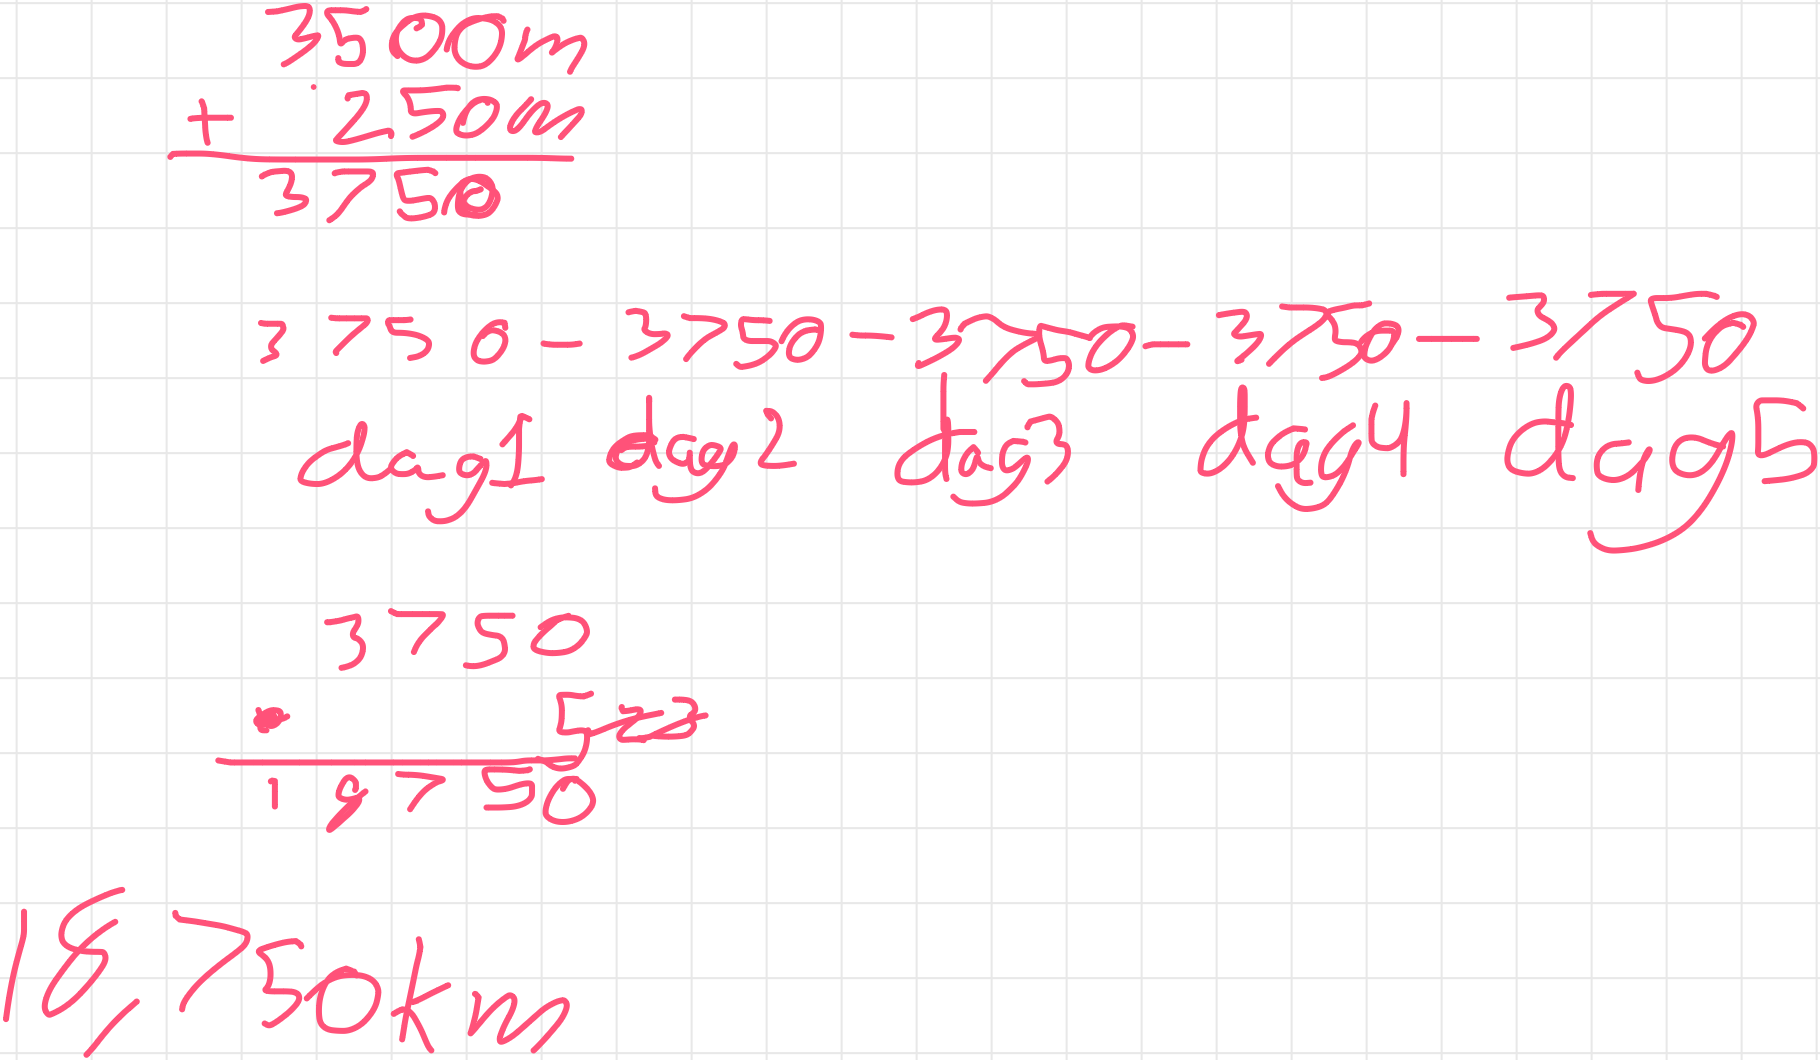 3500m
+ 250m
3750
3750 - 3750 - 3750 - 3750 - 3750
dag1 dag2 dag3 dag4 dag5
3750
• 5
18750
18,750km